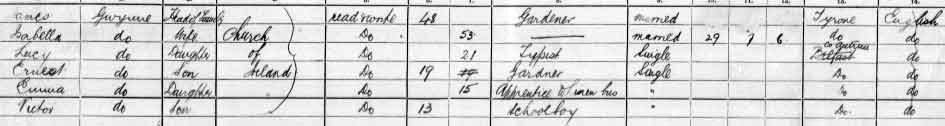 Gwynne Head of Family read write 48 Gardener married Tyrone English
Isabella do Wife Church Do 53 married 29 7 6 do do
Lucy do Daughter of Do 21 Typist Single Co Antrim Belfast do
Ernest do Son Ireland Do 19 Gardner Single Do do
Emma do Daughter Do 15 Apprentice to linen bus " Do do
Victor do Son Do 13 Schoolboy " Do do